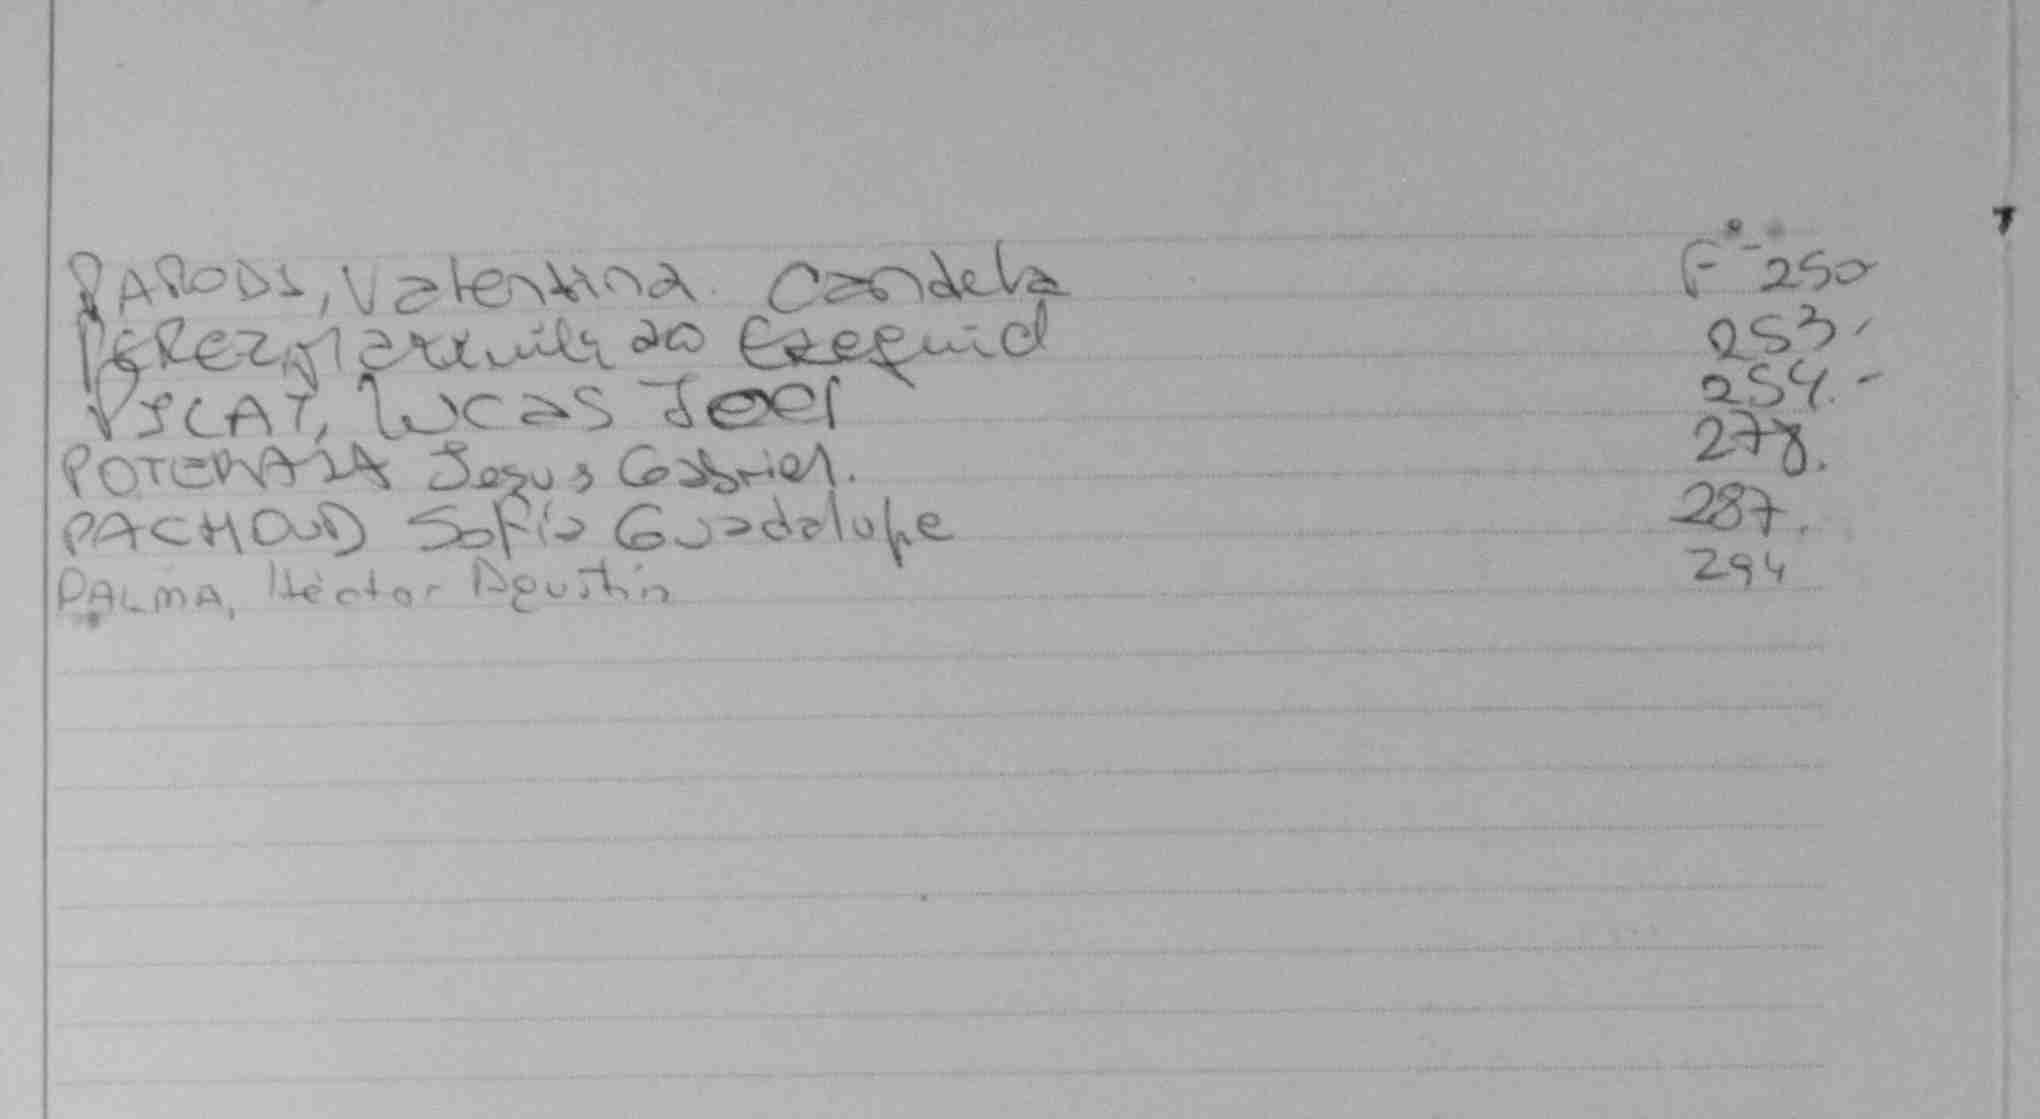 PARODI, Valentina Candela F° 250
PEREZ, Maximiliano Ezequiel 253.-
PICAT, Lucas Joel 254.-
Jesus Gabriel. 278.
PACHOUD Sofía Guadalupe 287.
PALMA, Héctor Agustín 294